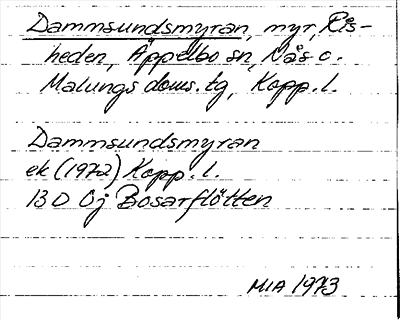 Dammsundsmyran, myr, Rís-
heden, Äppelbo sn, Nås o.
Malungs doms. tg, Kopp. l.
Dammsundsmyran
ek (1972) Kopp. l.
13 D 0j Bosarflötten
MIA 1973